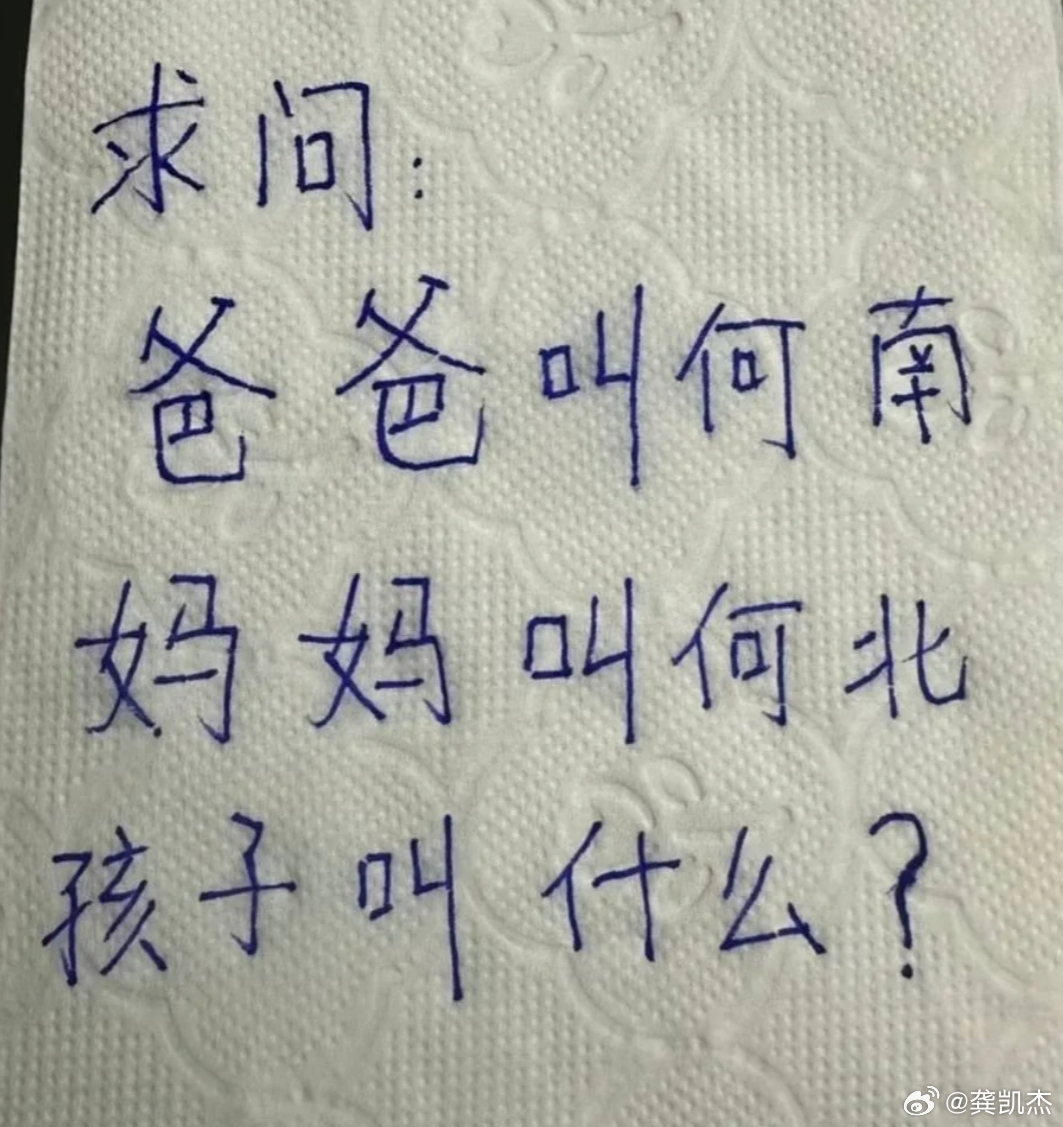 求问:
爸爸叫何南
妈妈叫何北
孩子叫什么?
@龚凯杰